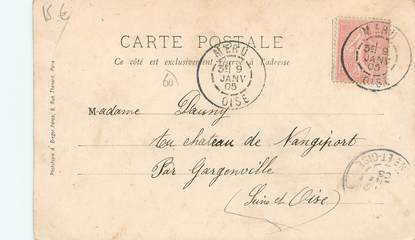 15 €
CARTE POSTALE
Ce côté est exclusivement réservé à l'adresse
MERU
9
JANV
05
OISE
MERU
9
JANV
05
OISE
Madame Dauny
Au chateau de Nangiport
Par Gargenville
(Seine et Oise)
ET-OISE